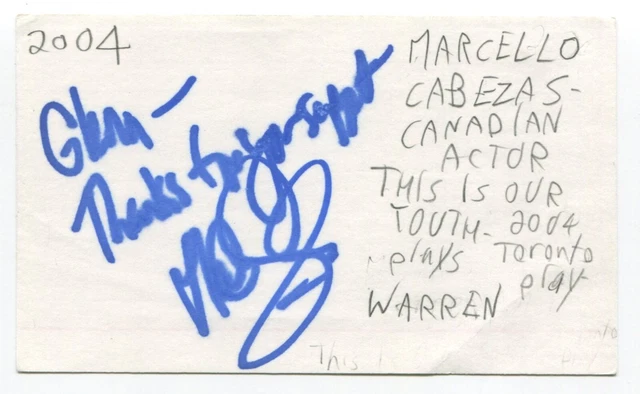 2004
Glenn -
Thanks for your support
MARCELLO
CABEZAS -
CANADIAN
ACTOR
THIS IS OUR
YOUTH - 2004
plays Toronto
play
WARREN
This is